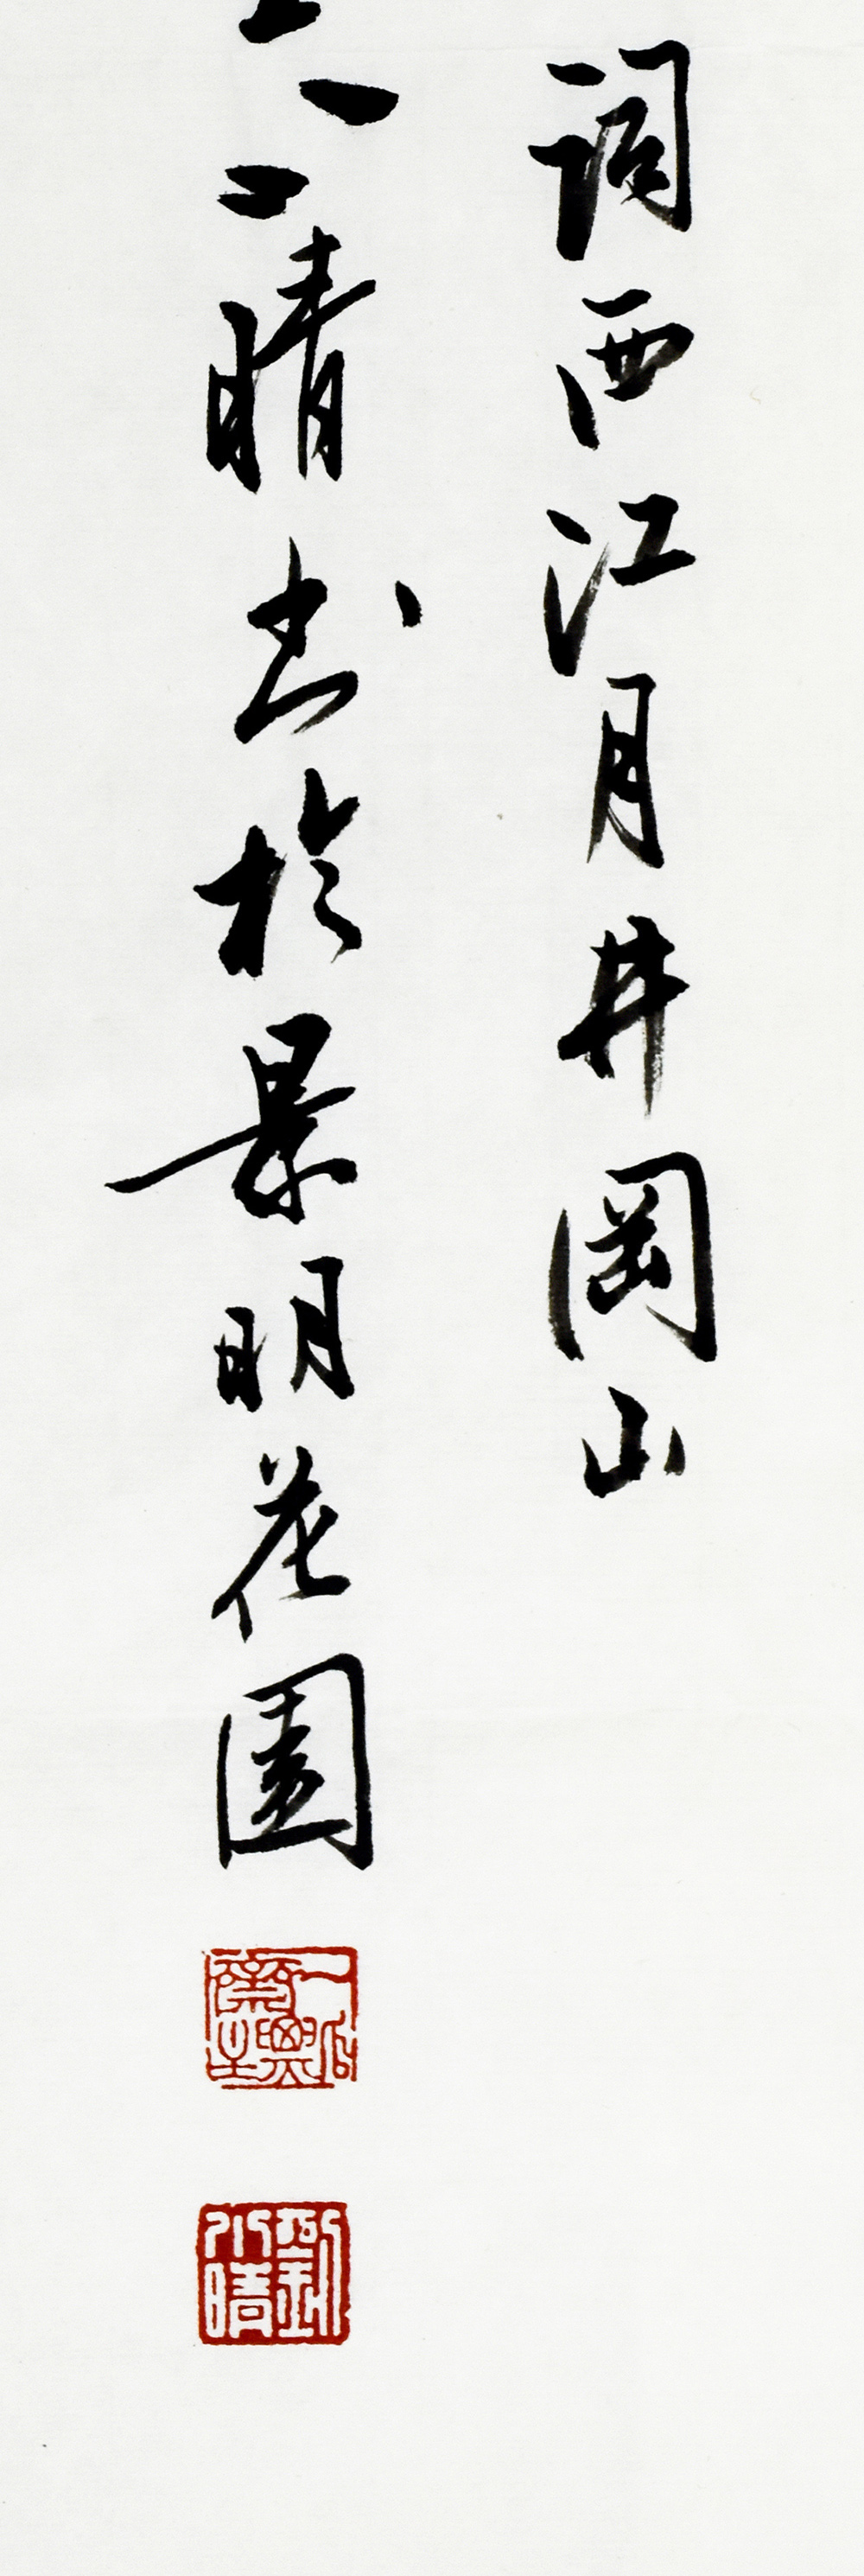 詞西江月井岡山
小晴书於景明花園
劉小晴